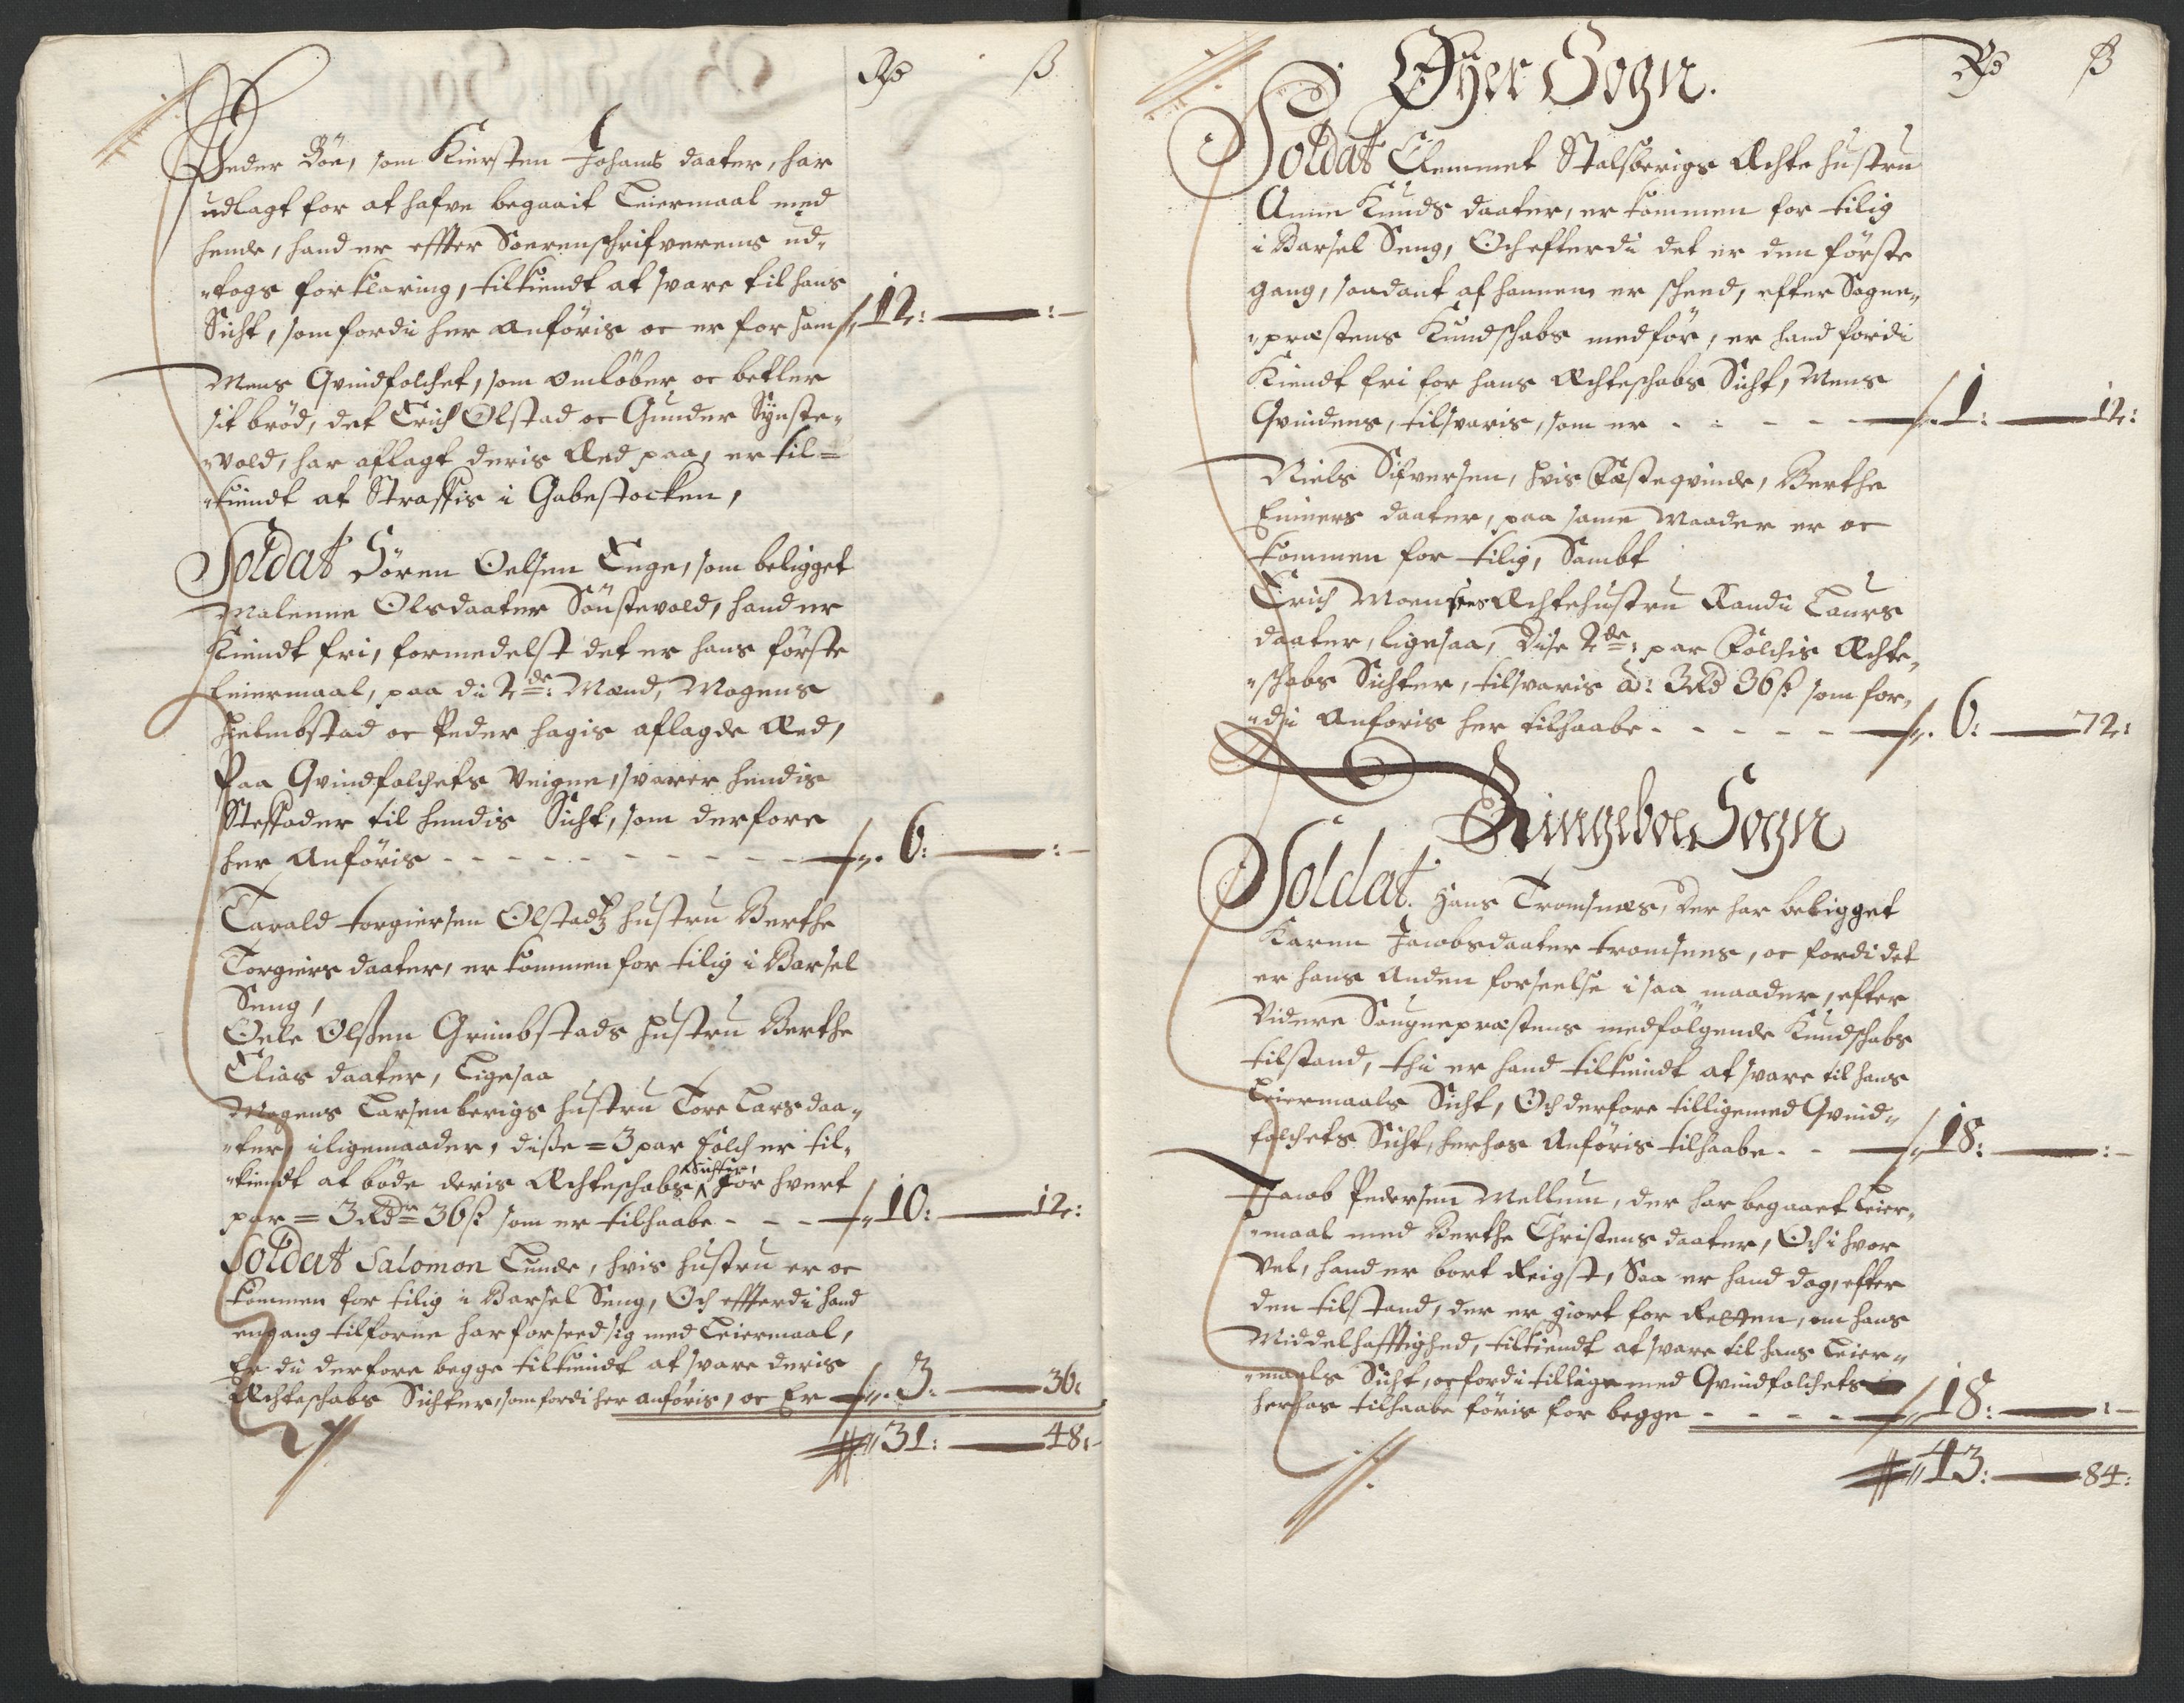 Rdr ß
Peder Böe, som Kiersten Johans daater, har
udlagt for at hafve begaait Leiermaal med
hende, hand er effter Sorenschrifverens ud-
"togs forklaring, tilkiendt at svare til hans
Sicht, som fordi her anföris oc er for ham 12: — : —
Mens Qvindfolchet, som omlöber oc betler
sit bröd, det Erich Olstad oc Gunder Synste-
"vold, har aflagt deris Æed paa, er til=
"kiendt at Straffis i Gabestocken,
Soldat Sören Oelsen Enge, som beligget
Malenne Olsdaater Sönstevold, hand er
Kiendt fri, formedelst det er hans förste
Leiermaal, paa di 2de: Mænd, Mogens
Hielmbstad oc Peder Hagis aflagde Æed,
Paa Qvindfolchets Veigne, svarer hendis
Steffader til hendis Sicht, som derfore
her Anföris - - - - - - - 6: — : —
Tarald Torgiersen Olstadtz hustru Berthe
Torgiers daater, er kommen for tilig i Barsel
Seng,
Oele Olssen Grimbstads hustru Berthe
Elias daater, Ligesaa
Mogens Larsen berigs hustru Tore Lars daa-
"ter, i lige maader, disse = 3 par folch er til-
"kiendt at böde deris Æchteschabs Sichter, for hvert
par = 3 Rdr 36 ß som er tilhaabe - - - 10: — 12:
Soldat Salomon Lunde, hvis hustru er oc
kommen for tilig i Barsel Seng, Och effterdi hand
engang tilforne har forseed sig med Leiermaal,
Er di derfore begge tilkiendt at svare deris
Æchteschabs Sichter, som fordi her anföris, oc Er 3: — 36:
31: — 48:
Öyer Sogn.
Rdr ß
Soldat Clemmet Stalsberigs Æchte hustru
Anne Knuds daater, er kommen for tilig
i Barsel Seng, Och efterdi det er den förste
gang, saadant af hannem er scheed, efter Sogne-
"præstens Kundschabs medför, er hand fordi
Kiendt fri for hans Æchteschabs Sicht, Mens
Qvindens, tilsvaris, som er - - - - 1: — 12:
Niels Sifversen, hvis Fæsteqvinde, Berthe
Einers daater, paa same Maader er oc
kommen for tilig, Sambt
Erich Moensens Æchtehustru Randi Laurs
daater, ligesaa, Dise 2de: par Folchis Æchte-
"schabs Sichter, tilsvaris â: 3 Rd 36 ß som for-
"di Anföris her tilhaabe - - - - - 6: — 72:
Ringeboe Sogn
Soldat. Hans Tromsnæs, der har beligget
Karen Jacobsdaater tromsnes, oc fordi det
er hans Anden forseelse i saa maader, efter
Videre Sougnepræstens medfölgende Kundschabs
tilstand, thi er hand tilkiendt at svare til hans
Leiermaals Sicht, Och derfore tilligemed Qvind-
folchets Sicht, herhos Anföris tilhaabe - - 18: — : —
Jacob Pedersen Mellum, der har begaaet Leier-
"maal med Berthe Christens daater, Och i hvor
Vel, hand er bort Reigst, Saa er hand dog, efter
den tilstand, der er giort for Retten, om hans
Middelhafftighed, tilkiendt at svare til hans Leier-
"maals Sicht, oc fordi tillige med Qvindfolchets
herhos tilhaabe föris for begge - - - - 18: — : —
43: — 84: